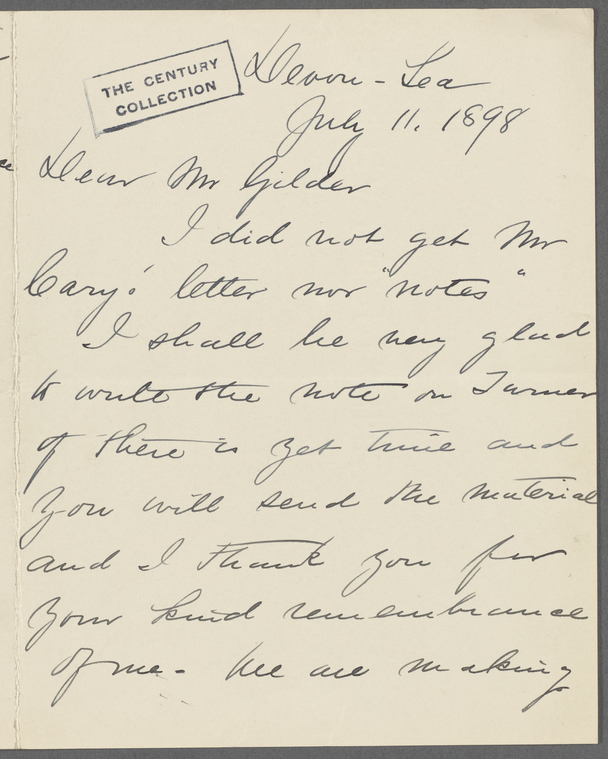 THE CENTURY
COLLECTION
Devon-Sea
July 11. 1898
Dear Mr Gilder
I did not get Mr
Cary's letter nor "notes"
I shall be very glad
to write the note on Turner
if there is yet time and
you will send the material
and I thank you for
your kind remembrance
of me - We are making